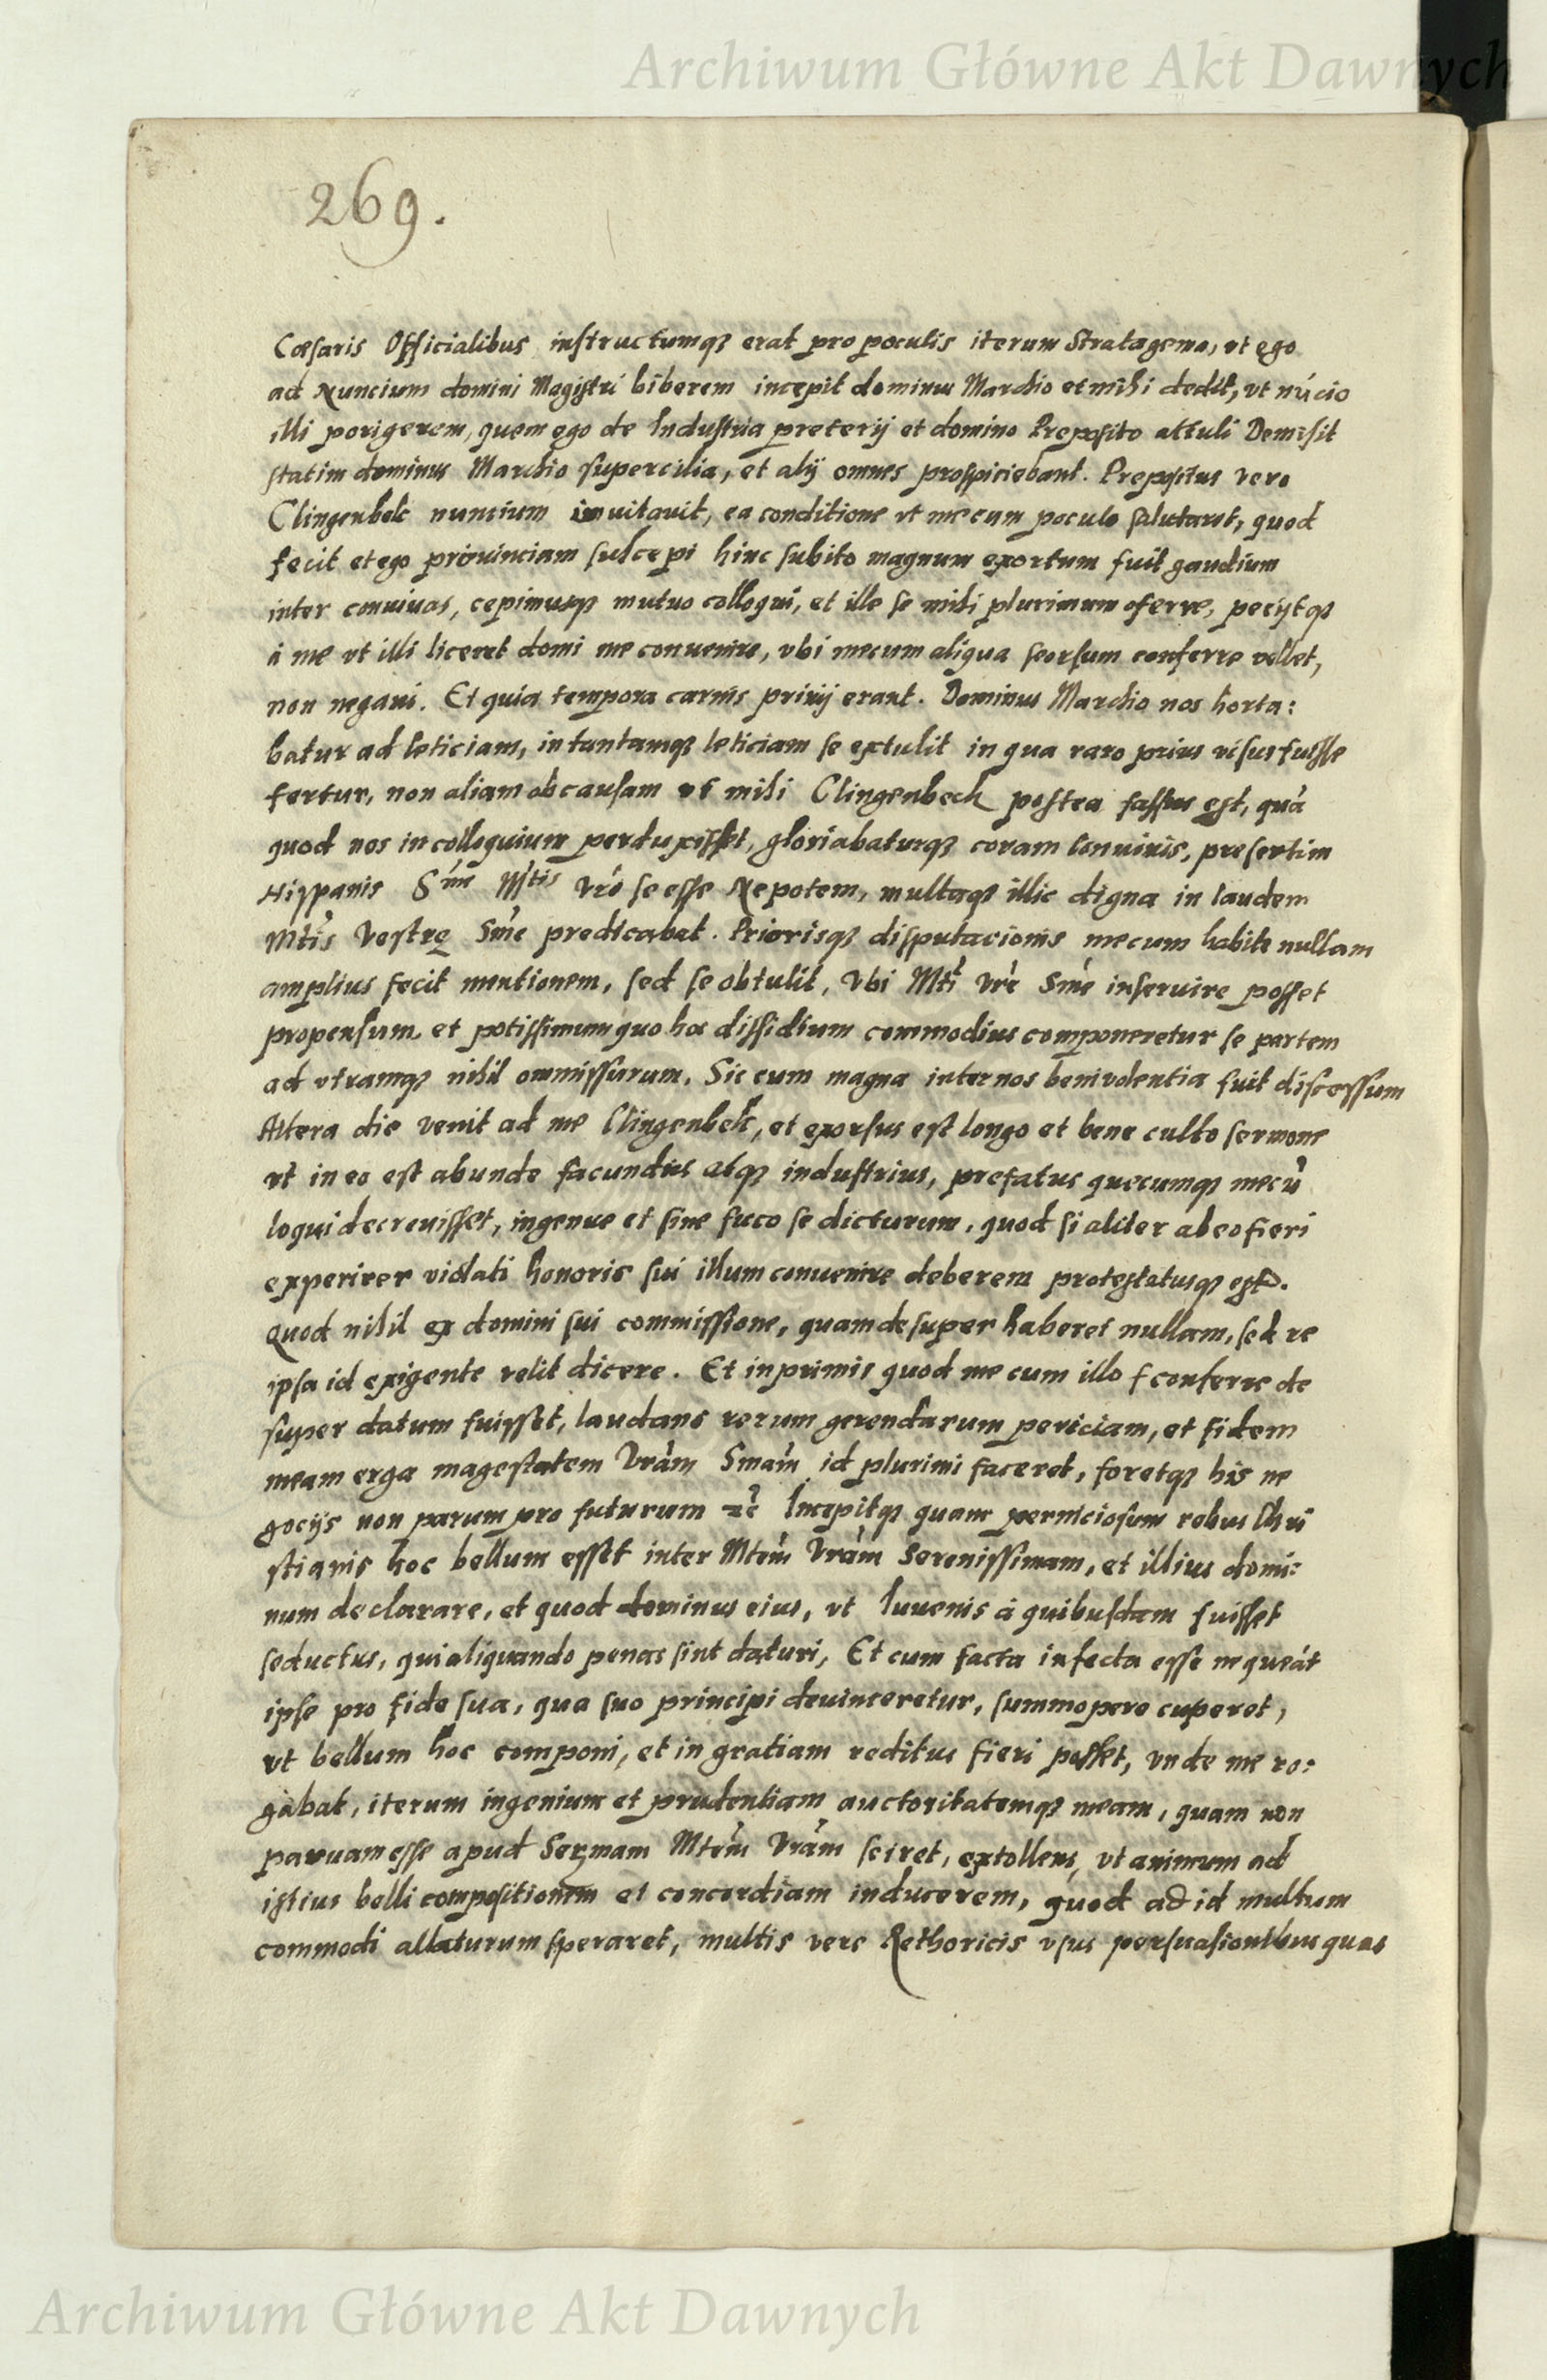 Archiwum Główne Akt Dawnych
269.
Cæsaris Officialibus instructumqȝ erat pro poculis iterum Stratagema, vt ego
ad Nuncium domini Magistri biberem incepit dominus Marchio et mihi dedit, vt núcio
illi porigerem, quem ego de Industria preterij et domino Preposito attuli Demisit
statim dominus Marchio supercilia, et alij omnes prospiciebant. Prepositus vero
Clingenbek nuncium inuitauit, ea conditione vt mecum poculo salutaret, quod
fecit et ego prouinciam suscepi hinc subito magnum exortum fuit gaudium
inter conuiuas, cepimusqȝ mutuo colloqui, et ille se mihi plurimum oferre, pecijtqȝ
à me vt illi liceret domi me conuenire, vbi mecum aliqua seorsum conferre vellet,
non negaui. Et quia tempora carnis priuij erant. Dominus Marchio nos horta:
batur ad leticiam, in tantamqȝ leticiam se extulit in qua raro prius visus fuisse
fertur, non aliam ob causam vt mihi Clingenbeck postea fassus est, quà
quod nos in colloquium perduxisset, gloriabaturqȝ coram conuiuis, presertim
Hispanis Sme Mtis vrê se esse Nepotem, multaqȝ illic digna in laudem
Mtis Vestrę Smê predicabat. Priorisqȝ disputacionis mecum habite nullam
amplius fecit mentionem, sed se obtulit, Vbi Mti vrê Smê inseruire posset
propensum, et potissimum quo hoc dissidium commodius componeretur se partem
ad vtramqȝ nihil ommissurum. Sic cum magna inter nos beniuolentia fuit discessum
Altera die venit ad me Clingenbek, et exorsus est longo et bene culto sermone
vt in eo est abunde facundus atqȝ industrius, prefatus quecumqȝ mecũ
loqui decreuisset, ingenue et sine fuco se dicturum, quod si aliter ab eo fieri
experirer violati honoris sui illum conuenire deberem protestatusqȝ est.
Quod nihil ex domini sui commissione, quam desuper haberet nullam, sed re
ipsa id exigente velit dicere. Et inprimis quod me cum illo conferre de
super datum fuisset, laudans rerum gerendarum periciam, et fidem
meam erga magestatem Vrãm Smãm id plurimi faceret, foretqȝ his ne
gocijs non parum pro futurum Incepitqȝ quam perniciosum rebus Chri
stianis hoc bellum esset inter Mtem Vrãm Serenissimam, et illius domi:
num declarare, et quod dominus eius, vt Iuuenis à quibusdam fuisset
seductus, qui aliquando penas sint daturi, Et cum facta infecta esse nequeãt
ipse pro fide sua, qua suo principi deuinceretur, summopere cuperet,
vt bellum hoc componi, et in gratiam reditus fieri posset, vnde me ro:
gabat, iterum ingenium et prudentiam auctoritatemqȝ meam, quam non
paruam esse apud Sermam Mtẽm Vrãm sciret, extollens, vt animum ad
istius belli compositionem et concordiam inducerem, quod ad id multum
commodi allaturum speraret, multis vero Rethoricis vsus persuasionibus quas
Archiwum Główne Akt Dawnych